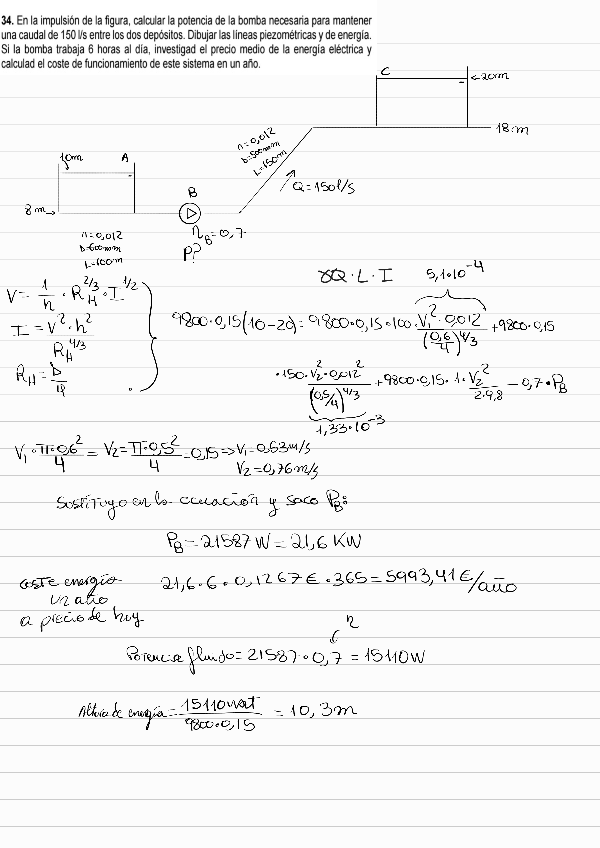 34. En la impulsión de la figura, calcular la potencia de la bomba necesaria para mantener
una caudal de 150 l/s entre los dos depósitos. Dibujar las líneas piezométricas y de energía.
Si la bomba trabaja 6 horas al día, investigad el precio medio de la energía eléctrica y
calculad el coste de funcionamiento de este sistema en un año.
C
20m
18m
n=0,012
D=500mm
L=150m
10m A
B
Q=150l/s
8m
n=0,012
D=600mm
L=100m
η_B=0,7
P?
γQ·L·I 5,1·10^-4
V = 1/n · R_H^2/3 · I^1/2
9800·0,15(10-20)=9800·0,15·100·V₁²·0,012/(0,6/4)^4/3+9800·0,15
I = V²·n²/R_H^4/3
R_H = D/4
·150·V₂²·0,012²/(0,5/4)^4/3+9800·0,15·1·V₂²/2·9,8 - 0,7·P_B
1,33·10^-3
V₁·π·0,6²/4 = V₂=π·0,5²/4=0,15⇒V₁=0,53m/s
V₂=0,76m/s
Sustituyo en la ecuación y saco P_B:
P_B=21587W=21,6 KW
coste energía 21,6·6·0,1267€·365=5993,41€/año
un año
a precio de hoy
η
Potencia fluido=21587·0,7=15110W
Altura de energía=15110wat/9800·0,15 = 10,3m